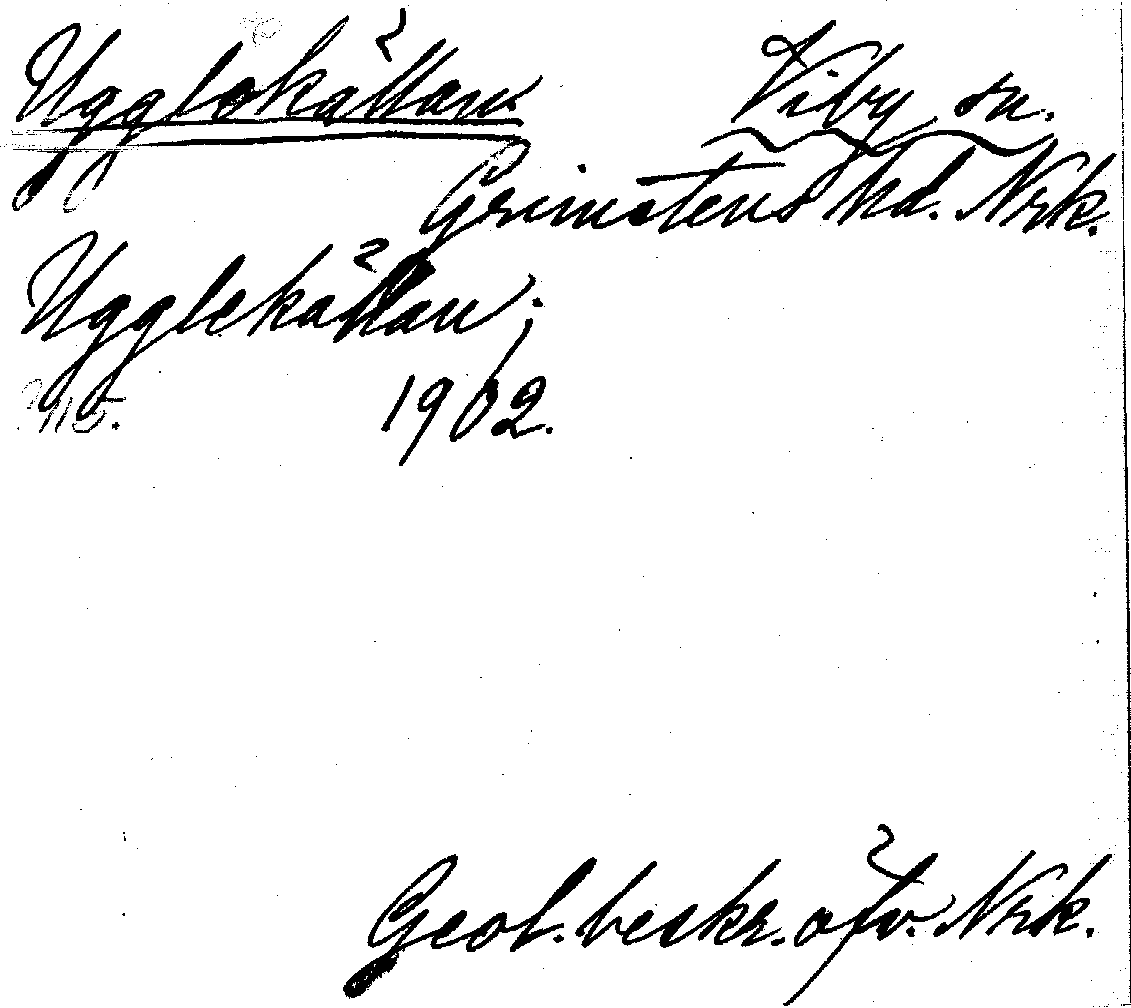 Ugglokällan Viby sn.
Grimstens hd. Nrk.
Ugglekällan;
1902.
Geol. beskr. öfv. Nrk.